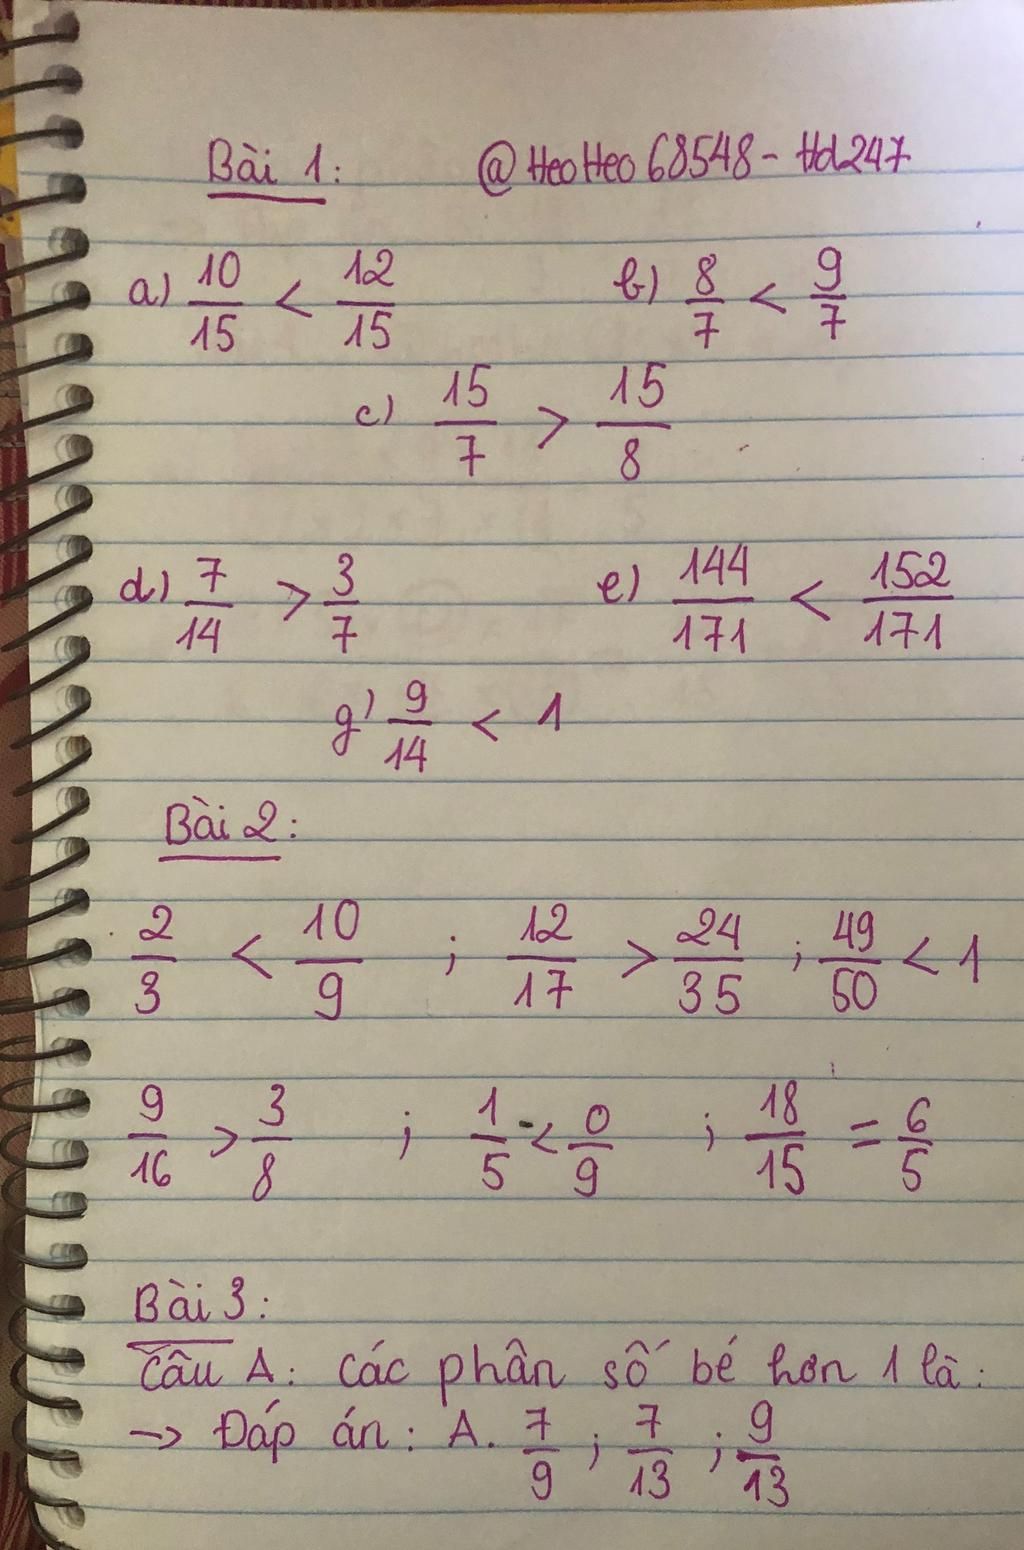 Bài 1: @HeoHeo68548-Hd247
a) 10/15 < 12/15 b) 8/7 < 9/7
c) 15/7 > 15/8
d) 7/14 > 3/7 e) 144/171 < 152/171
g) 9/14 < 1
Bài 2:
2/3 < 10/9 ; 12/17 > 24/35 ; 49/50 < 1
9/16 > 3/8 ; 1/5 < 0/9 ; 18/15 = 6/5
Bài 3:
Câu A: Các phân số bé hơn 1 là:
→ Đáp án: A. 7/9 ; 7/13 ; 9/13